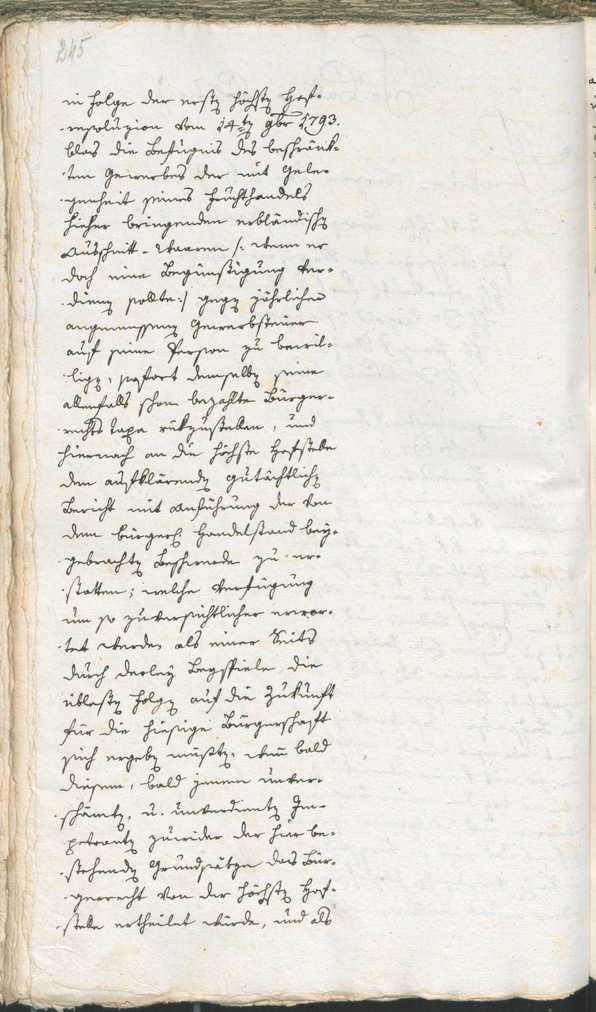 245
in Folge der ersten höchsten Hof-
resoluzion vom 14ten 9br 1793.
blos die Befugnis des beschränk-
ten Gewerbes der mit Gele-
genheit seines Fruchthandels
hieher bringenden erbländischen
Ausschnitt-Waaren /: wenn er
doch eine Begünstigung ver-
dienen sollte :/ gegen jährlichen
angemessenen Gewerbsteuer
auf seine Person zu bewil-
ligen, sofort demselben seine
allenfalls schon bezahlte Bürger-
rechts Taxe rükzustellen, und
hiernach an die höchste Hofstelle
den aufklärenden gutächtlichen
Bericht mit Anführung der von
dem bürgerl. Handelstand bey-
gebrachten Beschwerde zu er-
statten; welche Verfügung
um so zuversichtlicher erwar-
tet werden als einer Seits
durch derley Beyspiele die
übelsten Folgen auf die Zukunft
für die hiesige Bürgerschaft
sich ergeben müsten, wenn bald
diesem, bald jenem unver-
schämten, u. unverdienten Im-
petranten zuwider der hier be-
stehenden Grundsätze das Bür-
gerrecht von der höchsten Hof-
stelle ertheilet würde, und als